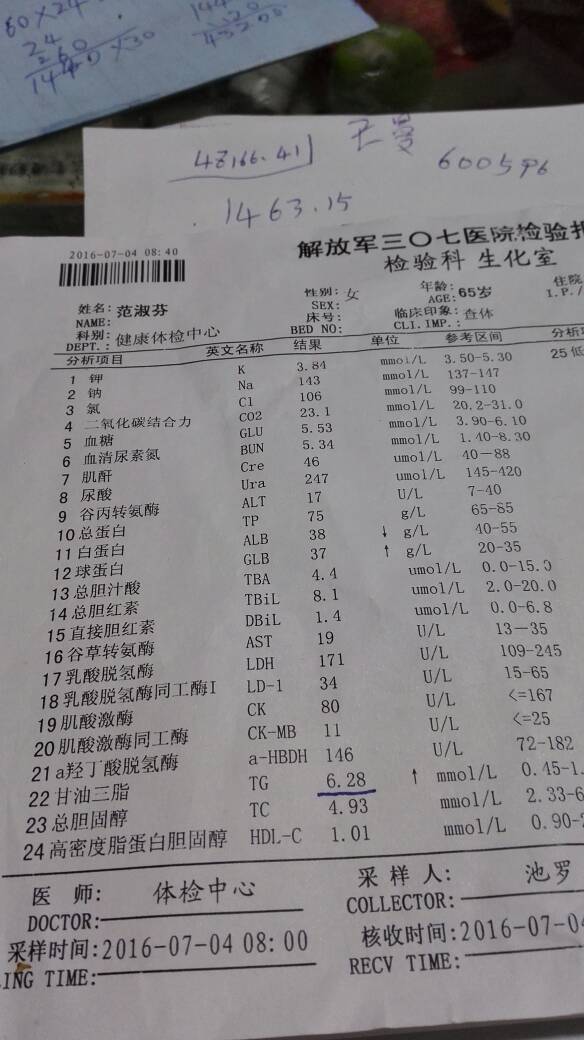 60×24
24
260
1440×30
144
30
43200
48166.41
天曼
600596
1463.15
2016-07-04 08:40
解放军三〇七医院检验
检验科 生化室
姓名: 范淑芬 性别: 女 年龄: 65岁 住院
NAME: SEX: AGE: I.P./
科别: 健康体检中心 床号: 临床印象: 查体
DEPT.: BED NO: CLI.IMP.:
分析项目 英文名称 结果 单位 参考区间 分析项
1 钾 K 3.84 mmol/L 3.50-5.30 25 低
2 钠 Na 143 mmol/L 137-147
3 氯 Cl 106 mmol/L 99-110
4 二氧化碳结合力 CO2 23.1 mmol/L 20.2-31.0
5 血糖 GLU 5.53 mmol/L 3.90-6.10
6 血清尿素氮 BUN 5.34 mmol/L 1.40-8.30
7 肌酐 Cre 46 umol/L 40-88
8 尿酸 Ura 247 umol/L 145-420
9 谷丙转氨酶 ALT 17 U/L 7-40
10 总蛋白 TP 75 g/L 65-85
11 白蛋白 ALB 38 ↓ g/L 40-55
12 球蛋白 GLB 37 ↑ g/L 20-35
13 总胆汁酸 TBA 4.4 umol/L 0.0-15.0
14 总胆红素 TBiL 8.1 umol/L 2.0-20.0
15 直接胆红素 DBiL 1.4 umol/L 0.0-6.8
16 谷草转氨酶 AST 19 U/L 13-35
17 乳酸脱氢酶 LDH 171 U/L 109-245
18 乳酸脱氢酶同工酶I LD-1 34 U/L 15-65
19 肌酸激酶 CK 80 U/L <=167
20 肌酸激酶同工酶 CK-MB 11 U/L <=25
21 a羟丁酸脱氢酶 a-HBDH 146 U/L 72-182
22 甘油三脂 TG 6.28 ↑ mmol/L 0.45-1.
23 总胆固醇 TC 4.93 mmol/L 2.33-6
24 高密度脂蛋白胆固醇 HDL-C 1.01 mmol/L 0.90-
医 师: 体检中心 采 样 人: 池罗
DOCTOR: COLLECTOR:
采样时间:2016-07-04 08:00 核收时间:2016-07-0
ING TIME: RECV TIME: